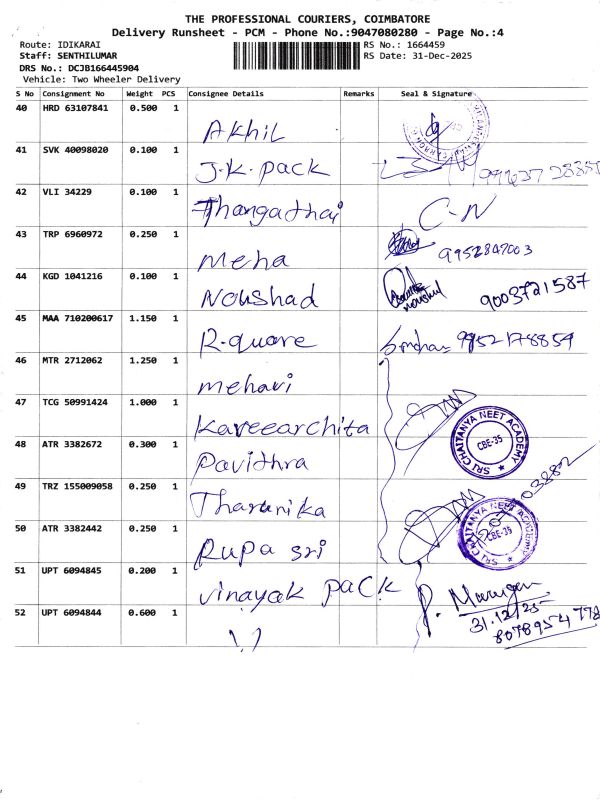 THE PROFESSIONAL COURIERS, COIMBATORE
Delivery Runsheet - PCM - Phone No.:9047080280 - Page No.:4
Route: IDIKARAI RS No.: 1664459
Staff: SENTHILUMAR RS Date: 31-Dec-2025
DRS No.: DCJB166445904
Vehicle: Two Wheeler Delivery
S No Consignment No Weight PCS Consignee Details Remarks Seal & Signature
40 HRD 63107841 0.500 1 Akhil
41 SVK 40098020 0.100 1 J.K. pack
42 VLI 34229 0.100 1 Thangathai C-N
43 TRP 6960972 0.250 1 Meha 9952847003
44 KGD 1041216 0.100 1 Noushad 9003721587
45 MAA 710200617 1.150 1 R-quare 9952178859
46 MTR 2712062 1.250 1 mehavi
47 TCG 50991424 1.000 1 Kareearchita
SRI CHAITANYA NEET ACADEMY
CBE-35
48 ATR 3382672 0.300 1 Pavithra
49 TRZ 155009058 0.250 1 Tharunika
03282
50 ATR 3382442 0.250 1 Rupa sri
SRI CHAITANYA NEET ACADEMY
CBE-35
51 UPT 6094845 0.200 1 Vinayak pack
P. Murugan
52 UPT 6094844 0.600 1 ''
31.12/25
8078954778